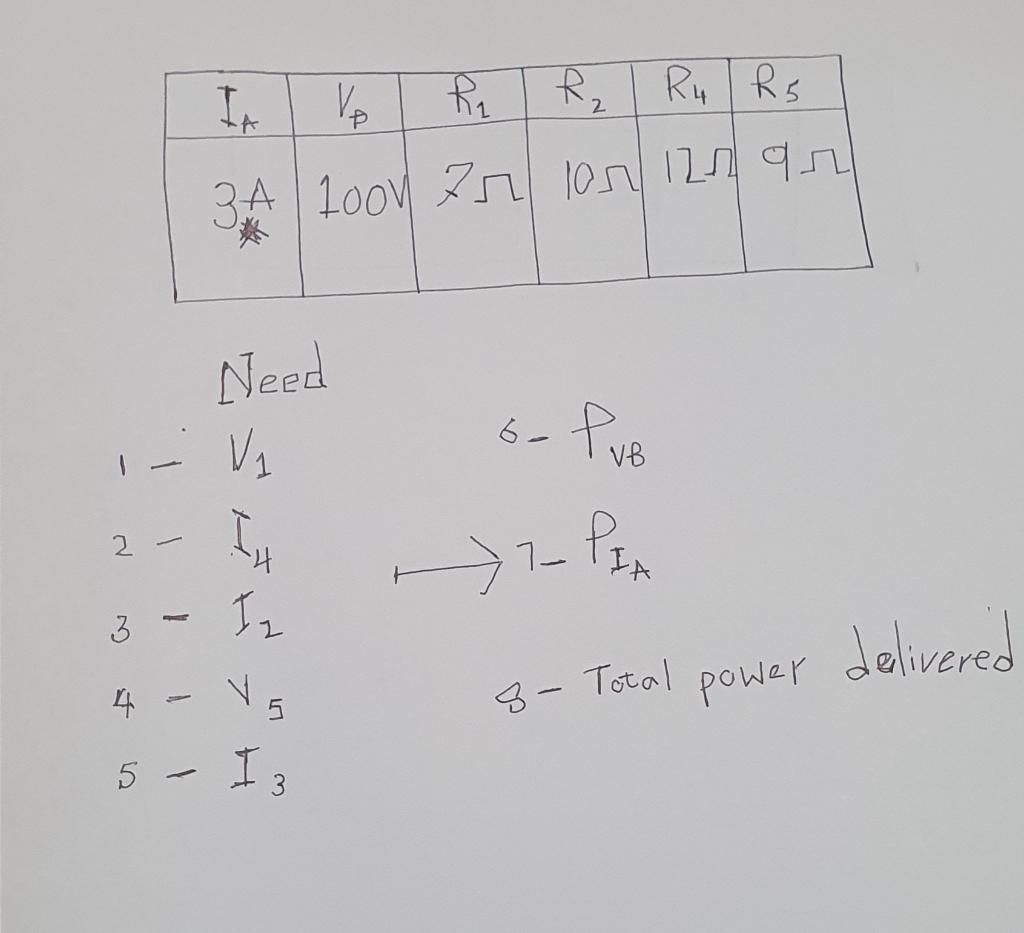 I_A V_B R_1 R_2 R_4 R_5
3A 100V 7Ω 10Ω 12Ω 9Ω
Need
1 - V_1
2 - I_4
3 - I_2
4 - V_5
5 - I_3
6 - P_VB
→ 7 - P_IA
8 - Total power delivered